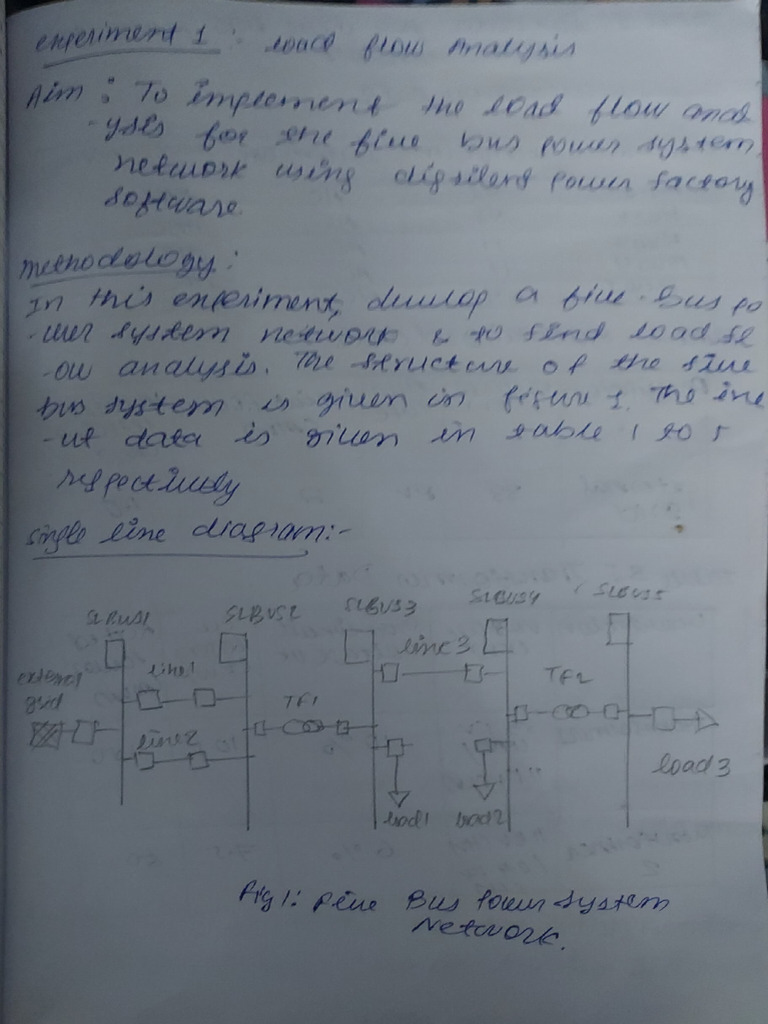 experiment 1 : Load flow Analysis
Aim : To implement the load flow anal
-ysis for the five bus power system
network using digsilent power factory
software.
methodology :
In this experiment, develop a five-bus po
-wer system network & to find load fl
-ow analysis. The structure of the five
bus system is given in figure 1. The inp
-ut data is given in table 1 to 5
respectively
single line diagram:-
SLBUS1 SLBUS2 SLBUS3 SLBUS4 SLBUS5
external
grid
line1
line2
TF1
line 3
TF2
load1 load2
load 3
Fig 1: Five Bus Power System
Network.